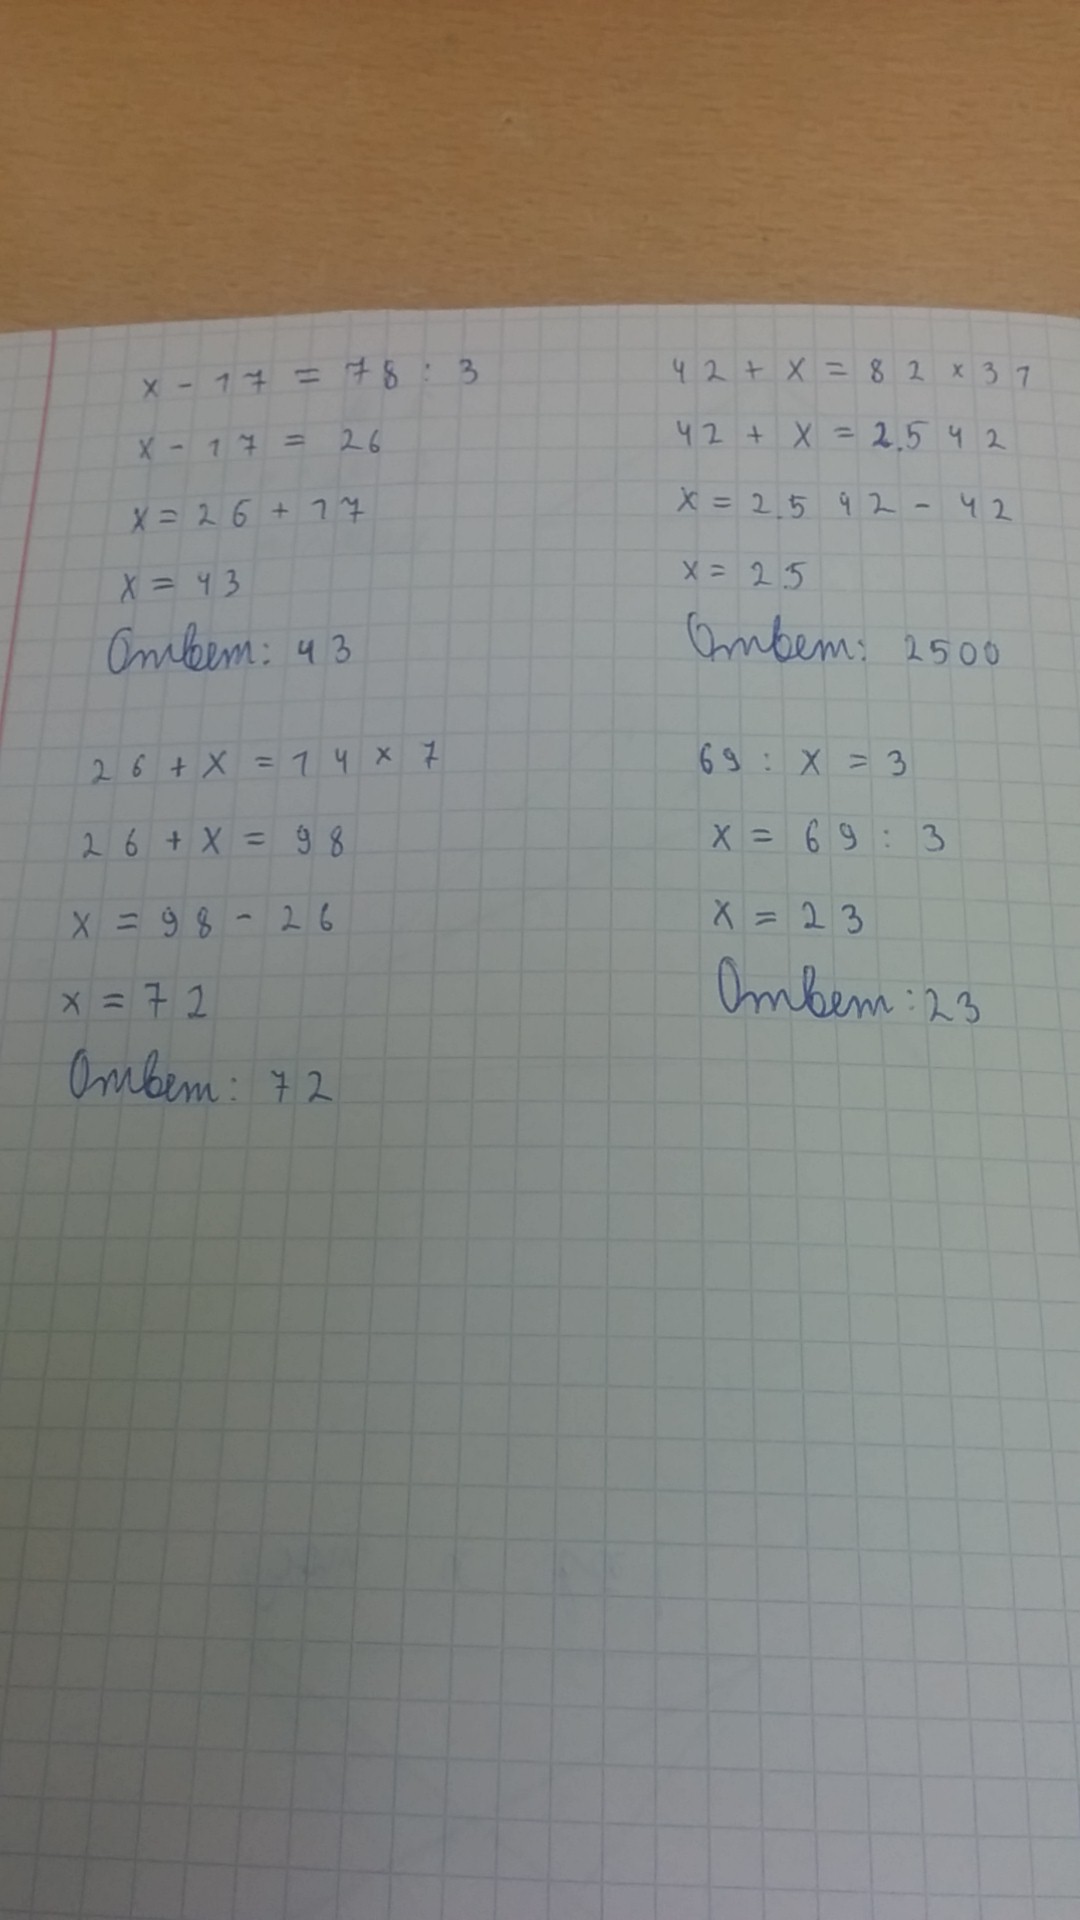 x - 17 = 78 : 3
x - 17 = 26
x = 26 + 17
x = 43
Ответ: 43
42 + x = 82 × 31
42 + x = 2.542
x = 2.542 - 42
x = 2.5
Ответ: 2500
26 + x = 14 × 7
26 + x = 98
x = 98 - 26
x = 72
Ответ: 72
69 : x = 3
x = 69 : 3
x = 23
Ответ: 23